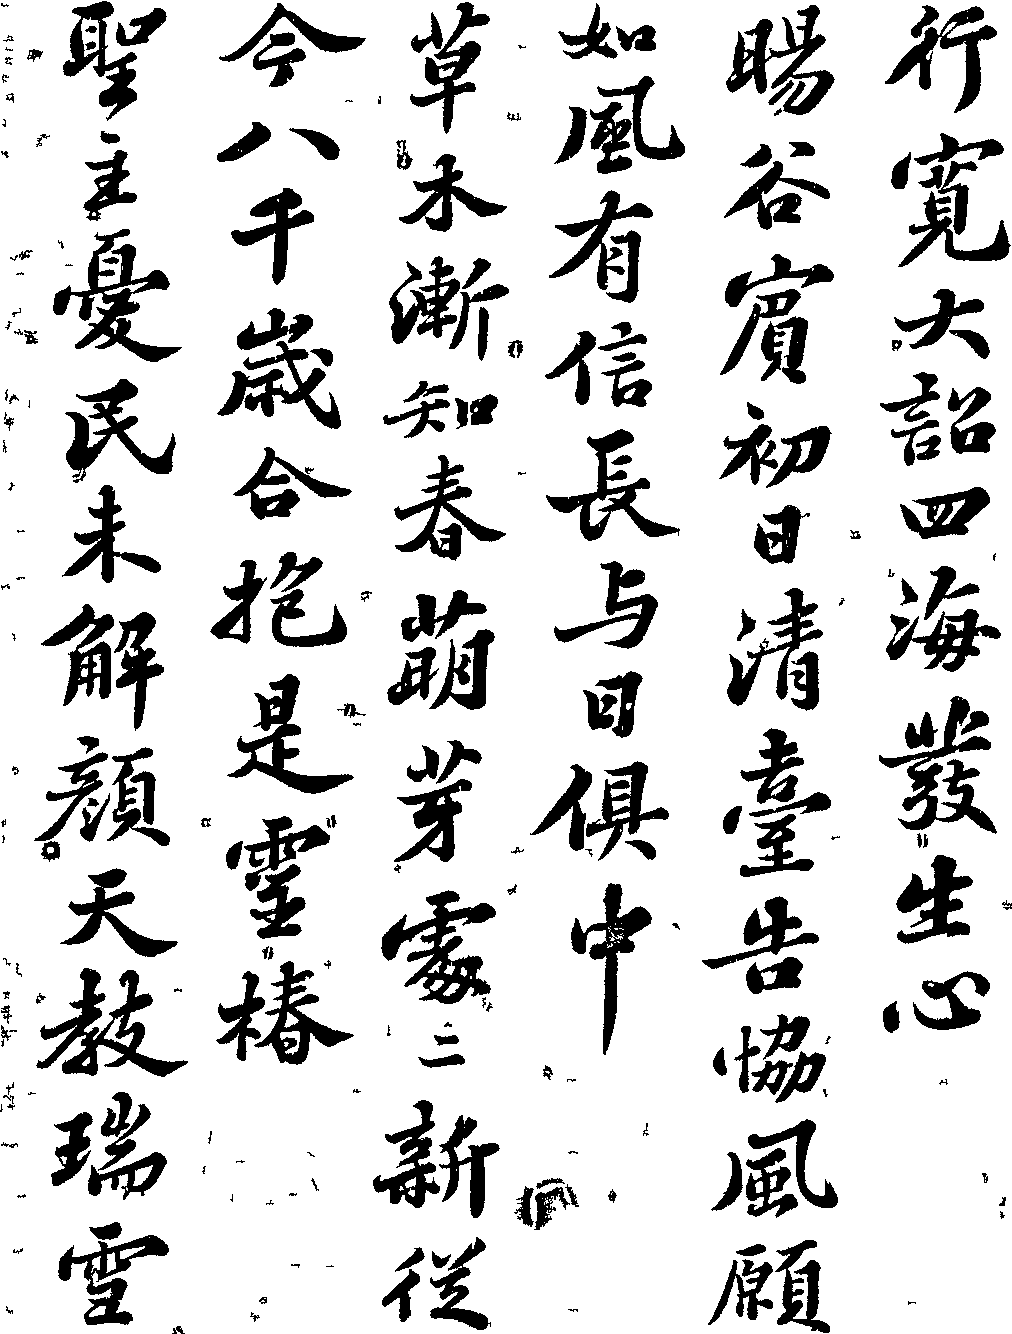 行寛大詔四海發生心
暘谷賓初日清臺告協風願
如風有信長与日俱中
草木漸知春萌芽處〻新從
今八千歳合抱是靈椿
聖主憂民未解顔天教瑞雪